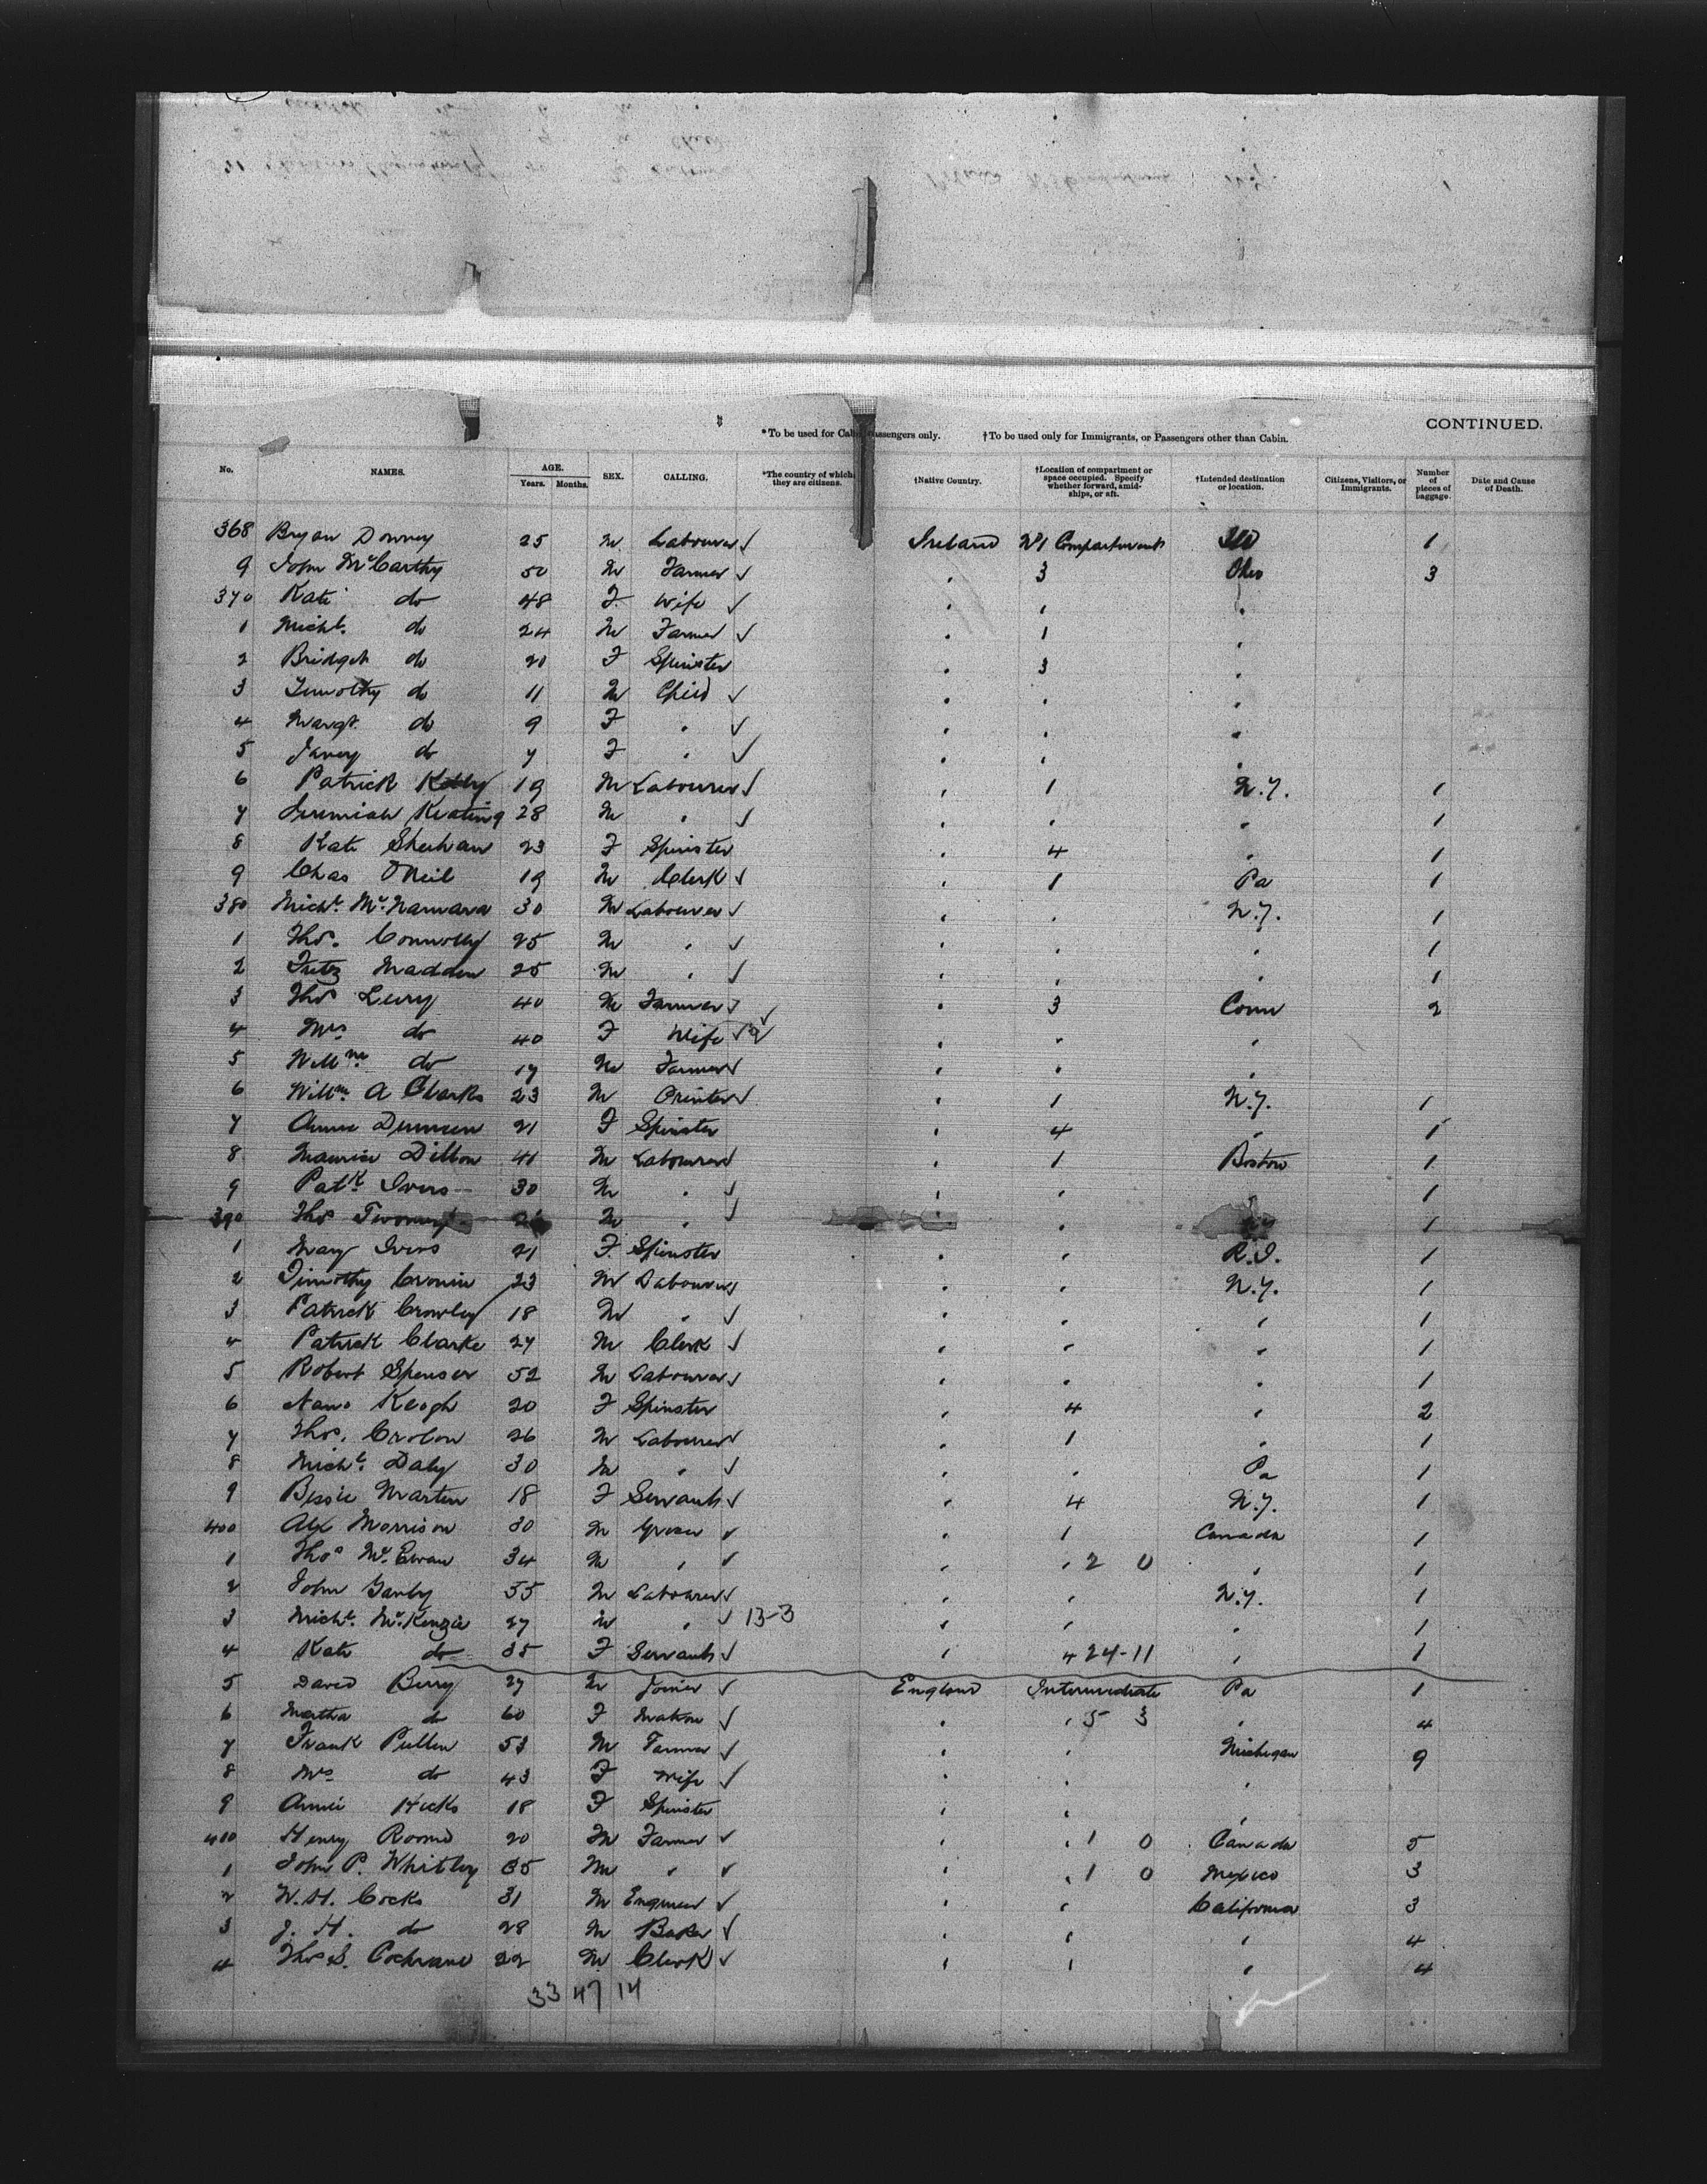 CONTINUED.
*To be used for Cabin Passengers only. †To be used only for Immigrants, or Passengers other than Cabin.
No. NAMES. AGE. Years. Months. SEX. CALLING. *The country of which they are citizens. †Native Country. †Location of compartment or space occupied. Specify whether forward, amidships, or aft. †Intended destination or location. Citizens, Visitors, or Immigrants. Number of pieces of baggage. Date and Cause of Death.
368 Bryan Downey 25 M Labourer ✓ Ireland No 1 Compartment 1
9 John McCarthy 50 M Farmer ✓ " 3 Ohio 3
370 Kate do 48 F. Wife ✓ " " "
1 Michl. do 24 M Farmer ✓ " 1 "
2 Bridget do 20 F Spinster " 3 "
3 Timothy do 11 M Child ✓ " " "
4 Margt. do 9 F " ✓ " " "
5 do 7 F " ✓ " " "
6 Patrick Kelly 19 M Labourer ✓ " 1 N.Y. 1
7 Jeremiah Keating 28 M " ✓ " " " 1
8 Kate Sheehan 23 F Spinster " 4 " 1
9 Chas O'Neil 19 M Clerk ✓ " 1 Pa 1
380 Michl. McNamara 30 M Labourer ✓ " " N.Y. 1
1 Thos. Connolly 25 M " ✓ " " " 1
2 Fritz Madden 25 M " ✓ " " " 1
3 Thos 40 M Farmer ✓ " 3 Conn 2
4 Mrs do 40 F Wife ✓ " " "
5 Willm. do 17 M Farmer ✓ " " "
6 Willm. A Clarke 23 M Printer ✓ " 1 N.Y. 1
7 Annie 21 F Spinster " 4 " 1
8 Maurice Dillon 41 M Labourer ✓ " 1 Boston 1
9 Patk Ivers 30 M " ✓ " " 1
390 Thos Twomey M " ✓ " 1
1 Mary Ivers 21 F. Spinster " " R.I. 1
2 Timothy Cronin 23 M Labourer ✓ " " N.Y. 1
3 Patrick Crowley 18 M " ✓ " " " 1
4 Patrick Clarke 27 M Clerk ✓ " " " 1
5 Robert Spenser 52 M Labourer ✓ " " " 1
6 Nano Keogh 20 F Spinster " 4 " 2
7 Thos. 26 M Labourer ✓ " 1 " 1
8 Michl. Daly 30 M " ✓ " " Pa 1
9 Bessie Martin 18 F Servant ✓ " 4 N.Y. 1
400 Alex Morrison 30 M Grocer ✓ " 1 Canada 1
1 Thos McEwan 34 M " ✓ " " 2 0 " 1
2 John Ganly 55 M Labourer ✓ " " N.Y. 1
3 Michl. McKenzie 27 M " ✓ 13-3 " " " 1
4 Kate do 35 F Servant ✓ " 4 24-11 " 1
5 David Berry 27 M Joiner ✓ England Intermediate Pa 1
6 Martha do 60 F Matron ✓ " " 5 3 " 4
7 Frank Pullen 53 M Farmer ✓ " " Michigan 9
8 Mrs do 43 F Wife ✓ " " "
9 Annie Hicks 18 F Spinster " " "
410 Henry Roome 20 M Farmer ✓ " " 1 0 Canada 5
1 John P. Whitley 35 M " ✓ " " 1 0 Mexico 3
2 W. H. Cocks 31 M Engineer ✓ " " California 3
3 J. H. do 28 M Baker ✓ " " " 4
4 Thos S. Cochrane 22 M Clerk ✓ " " " 4
33 47 14